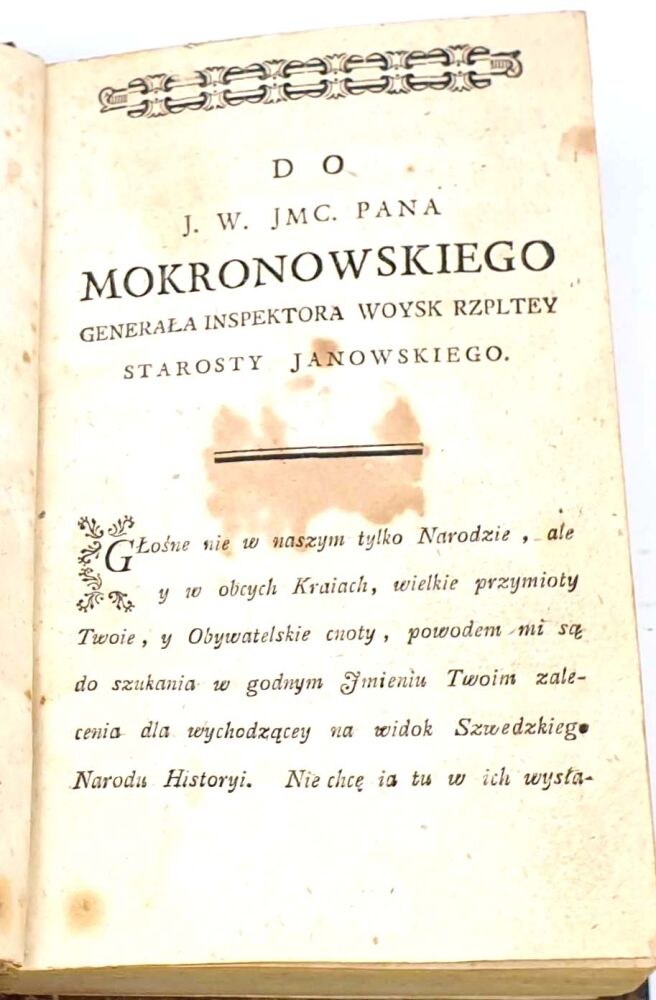 DO
J. W. JMC. PANA
MOKRONOWSKIEGO
GENERAŁA INSPEKTORA WOYSK RZPLTEY
STAROSTY JANOWSKIEGO.
GŁośne nie w naszym tylko Narodzie, ale
y w obcych Kraiach, wielkie przymioty
Twoie, y Obywatelskie cnoty, powodem mi są
do szukania w godnym Jmieniu Twoim zale-
cenia dla wychodzącey na widok Szwedzkiego
Narodu Historyi. Nie chcę ia tu w ich wysła-